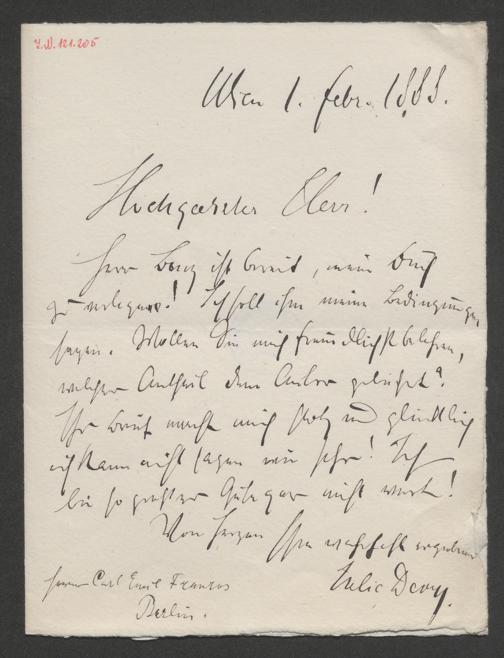 I.N. 121.205
Wien 1. Febr. 1888.
Hochgeehrter Herr!
Herr Bonz ist bereit, mein Buch
zu verlegen! Ich soll ihm meine Bedingungen
sagen. Wollen Sie mich freundlichst belehren,
welcher Antheil dem Autor gebührt?
Ihr Brief macht mich stolz und glücklich
ich kann nicht sagen wie sehr! Ich
bin so großer Güte gar nicht wert!
Von Herzen Ihre wahrhaft ergebene
Herrn Carl Emil Franzos
Berlin.